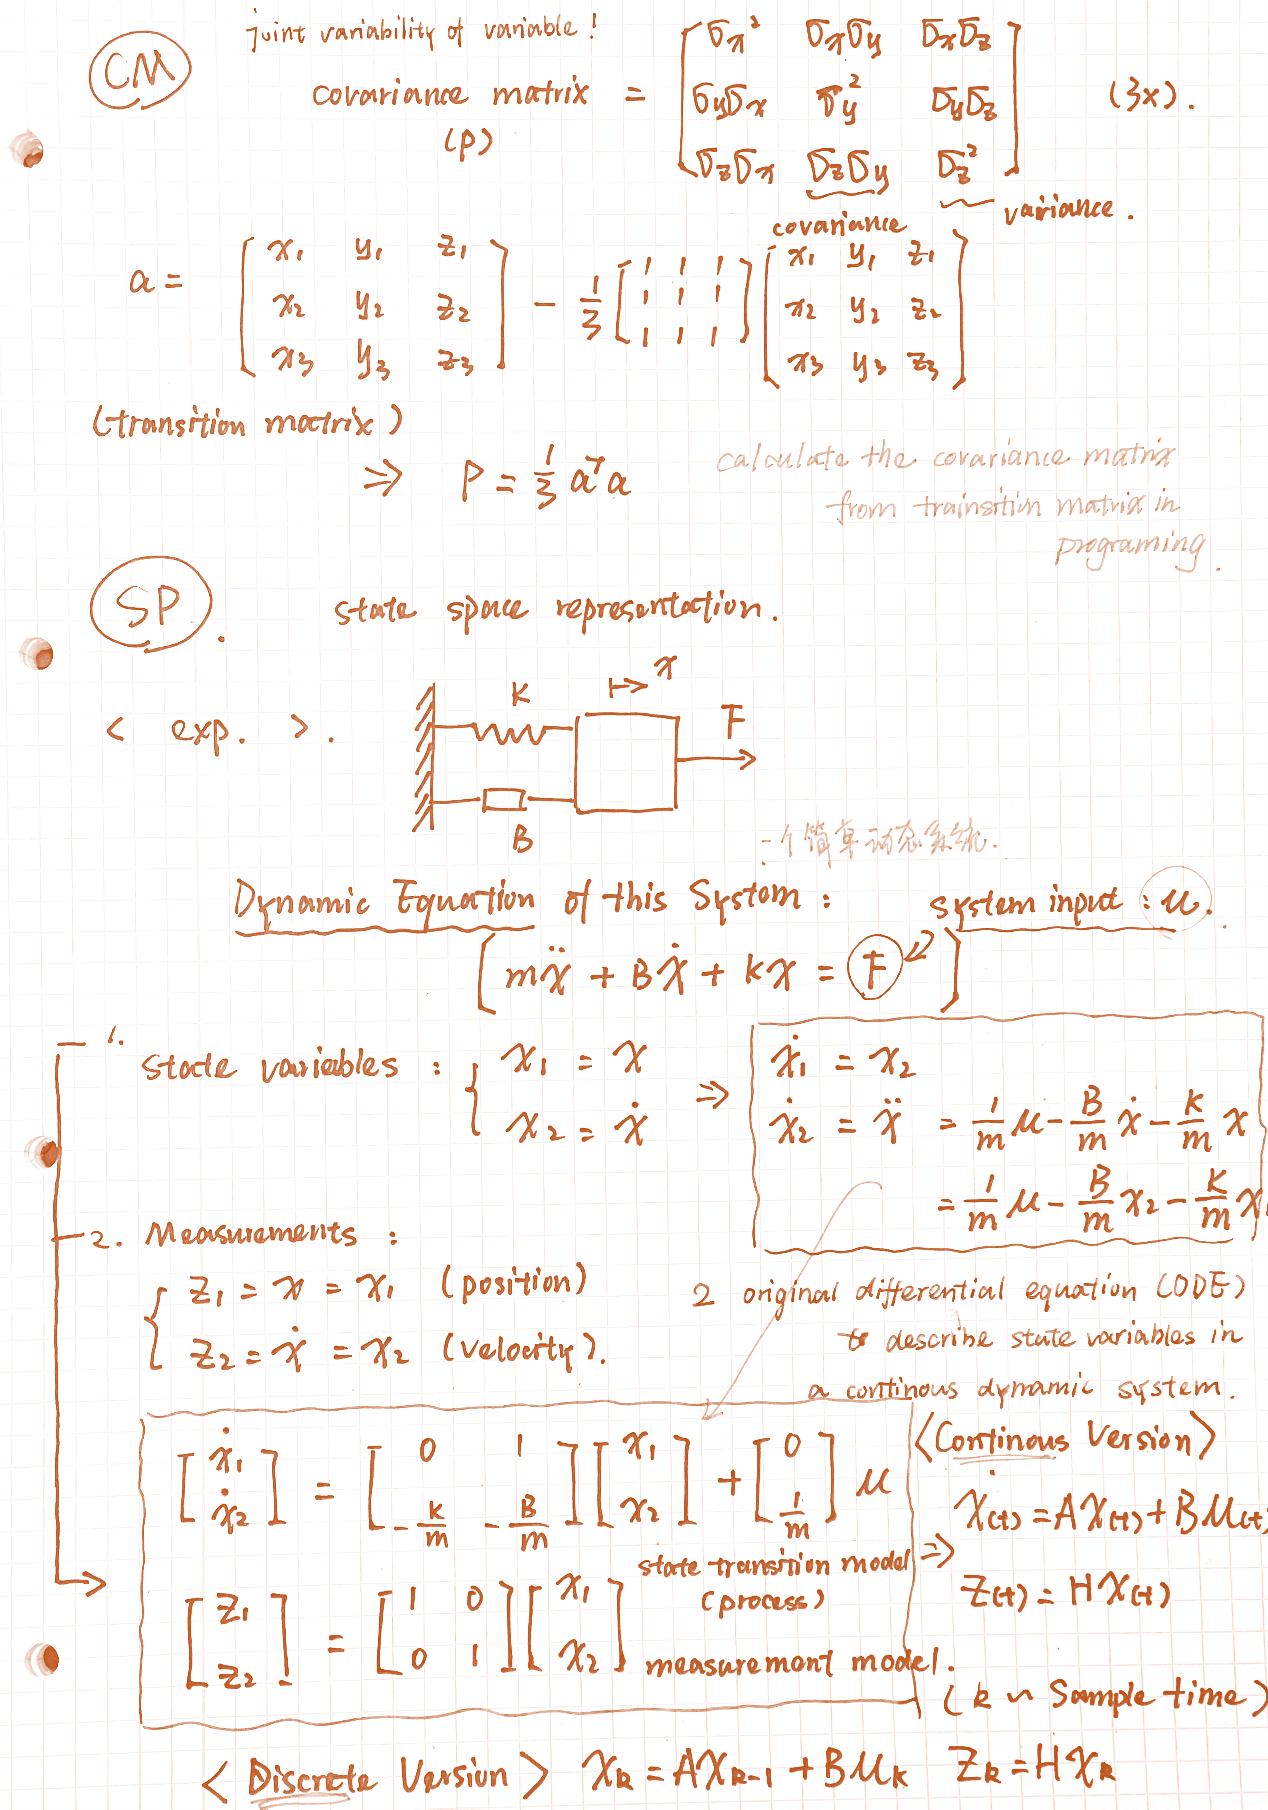 CM
joint variability of variable!
covariance matrix = [ σx² σxσy σxσz
σyσx σy² σyσz
σzσx σzσy σz² ] (3x).
(P)
covariance
variance.
a = [ x1 y1 z1
x2 y2 z2
x3 y3 z3 ] - 1/3 [ 1 1 1
1 1 1
1 1 1 ] [ x1 y1 z1
x2 y2 z2
x3 y3 z3 ]
(transition matrix)
⇒ P = 1/3 aᵀa
calculate the covariance matrix
from trainsition matrix in
programing.
SP.
state space representation.
< exp. >.
K
x
F
B
一个简单动态系统.
Dynamic Equation of this System:
system input: u.
[ mẍ + Bẋ + kx = F ]
1.
state variables: { x1 = x
x2 = ẋ
⇒
ẋ1 = x2
ẋ2 = ẍ = 1/m u - B/m ẋ - k/m x
= 1/m u - B/m x2 - k/m x1
2. Measurements:
{ z1 = x = x1 (position)
z2 = ẋ = x2 (velocity).
2 original differential equation (ODE)
to describe state variables in
a continous dynamic system.
[ ẋ1
ẋ2 ] = [ 0 1
-k/m -B/m ] [ x1
x2 ] + [ 0
1/m ] u
state transition model
(process)
[ z1
z2 ] = [ 1 0
0 1 ] [ x1
x2 ]
measurement model.
<Continous Version>
⇒ Ẋ(t) = AX(t) + BU(t)
Z(t) = HX(t)
(k ~ Sample time)
<Discrete Version> Xk = AXk-1 + BUk Zk = HXk